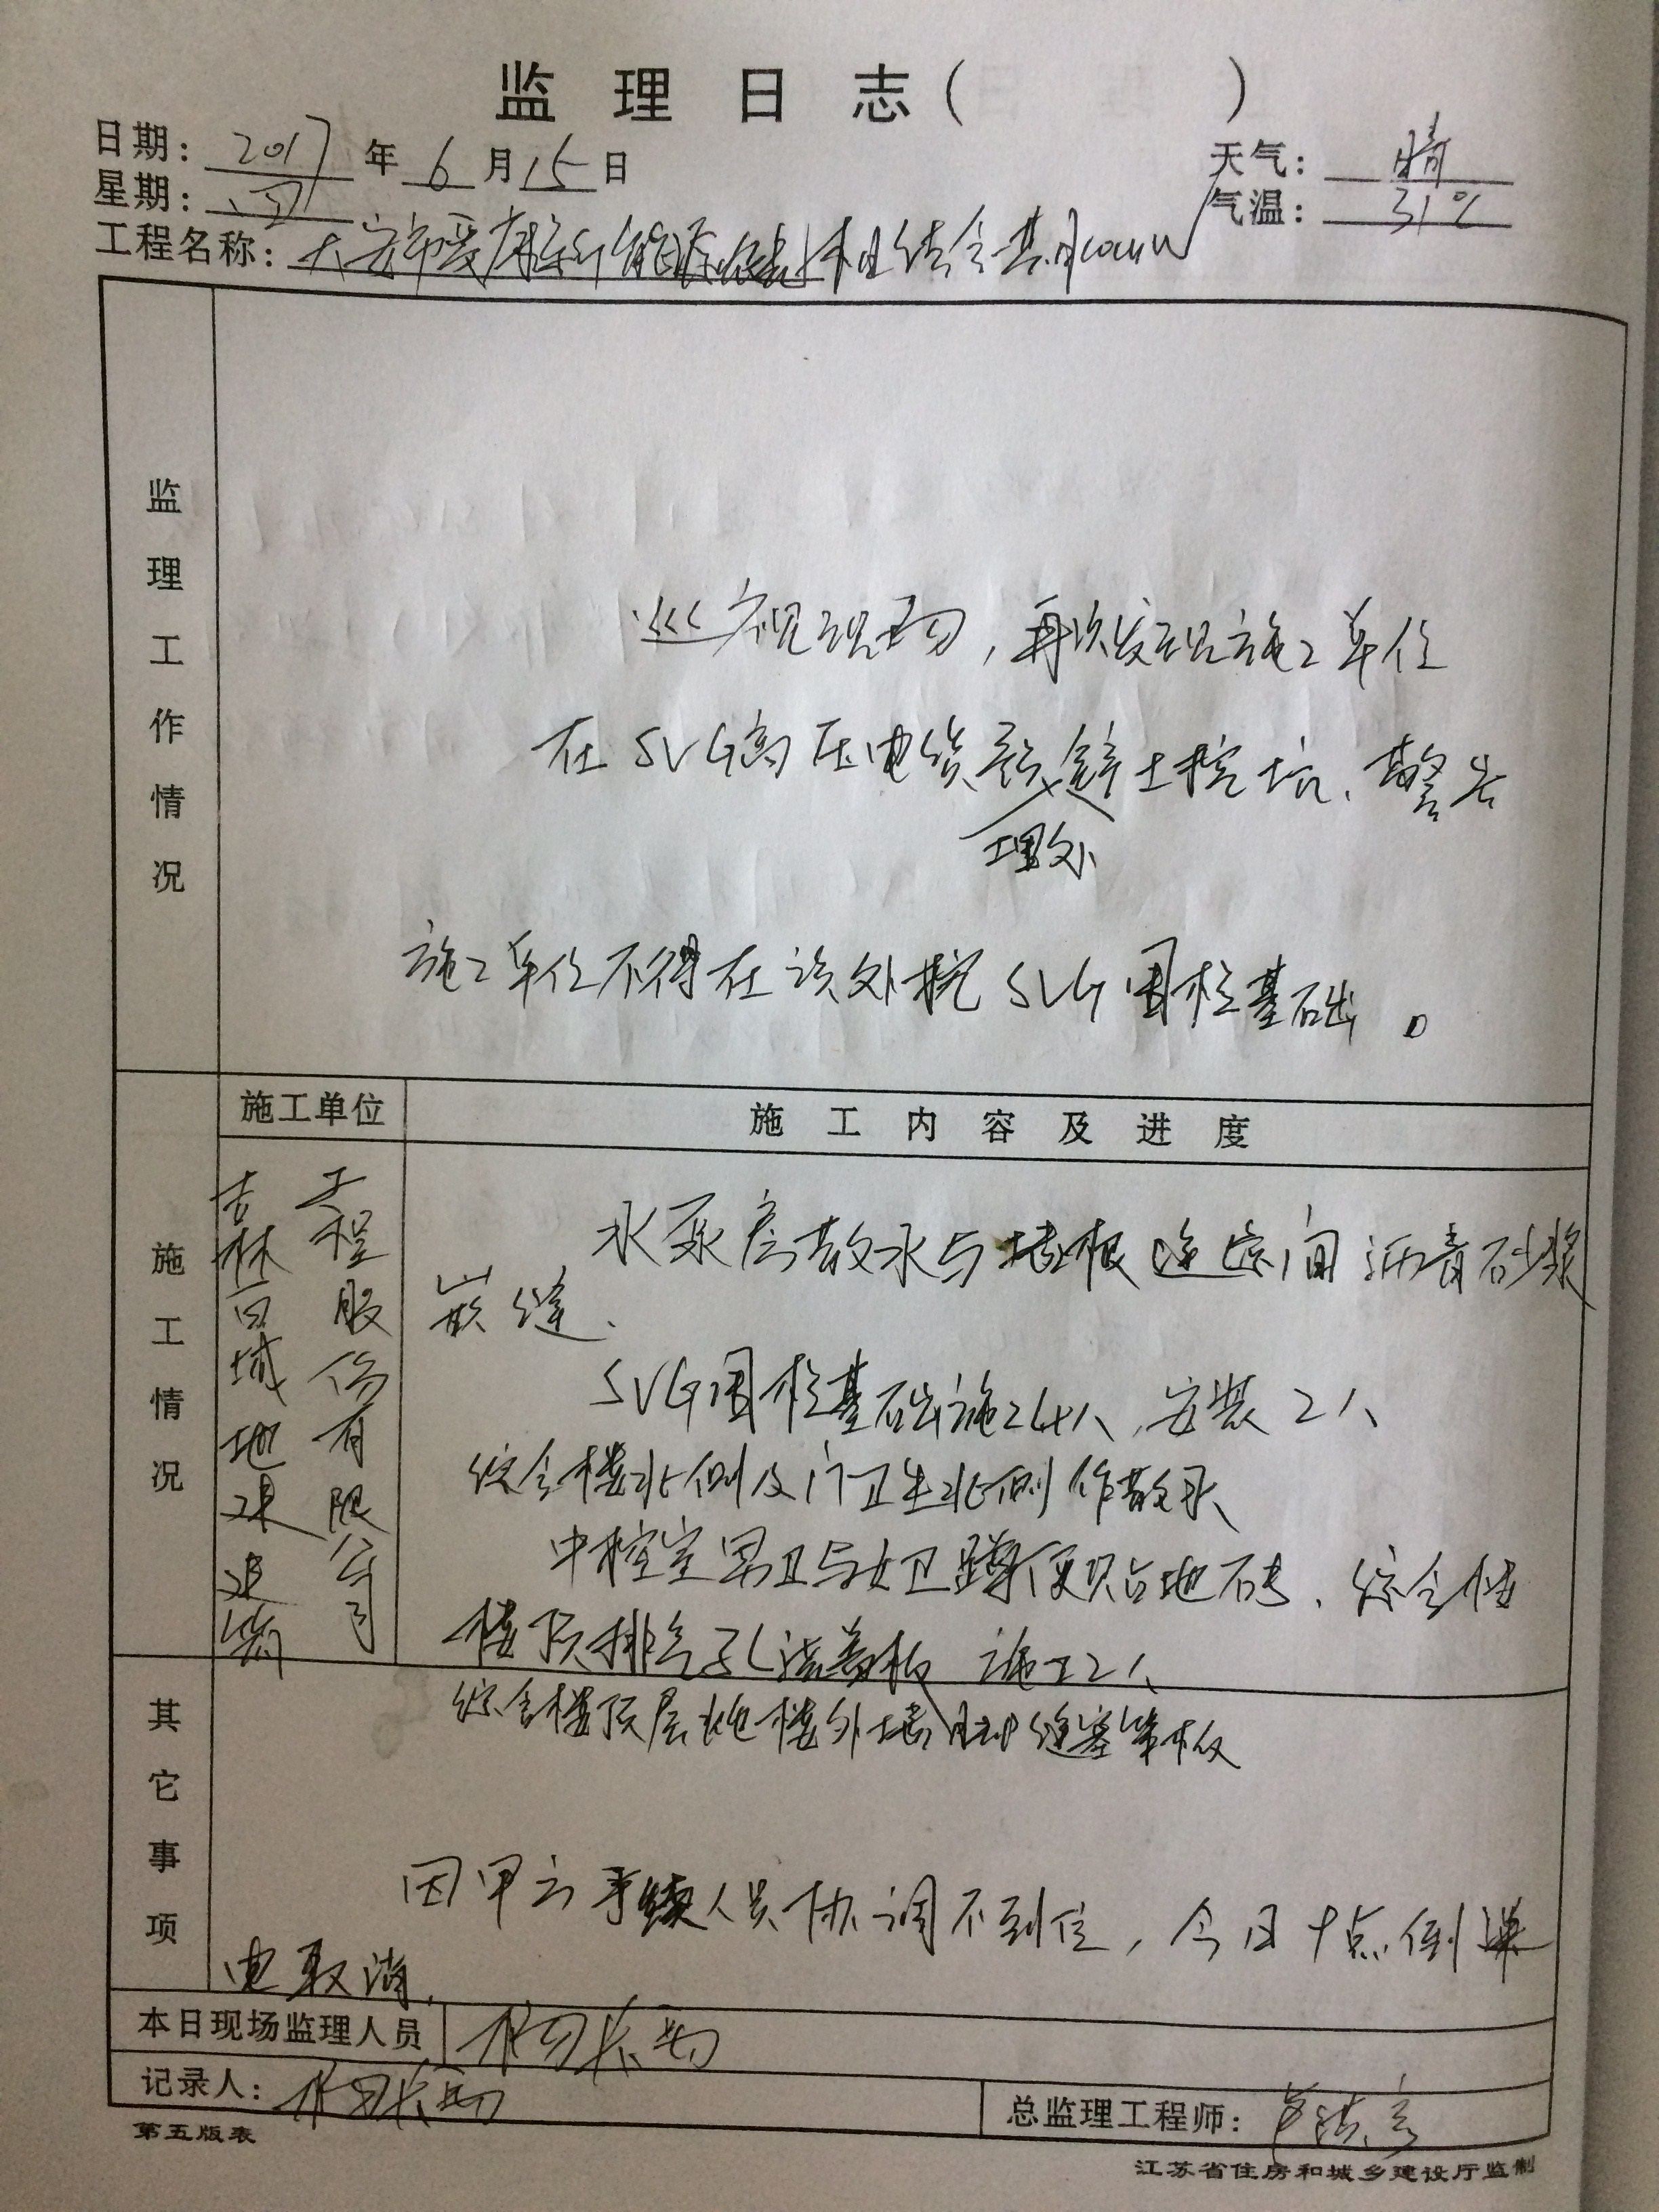 监理日志( )
日期: 2017 年 6 月 15 日
天气: 晴
星期: 四
气温: 31℃
工程名称: 大安市 能源 相结合 10MW
监理工作情况
巡视现场,再次发现施工单位
在SVG高压电缆 土挖坑、警告
埋处
施工单位不得在该处挖SVG围栏基础。
施工情况
施工单位
施工内容及进度
吉林百城地
工程股份有限公司
水泵房散水与墙根 间沥青砂浆
嵌缝、
SVG围栏基础施工4人,安装2人
综合楼北侧及门卫北侧作散水
中控室男卫与女卫蹲便贴地砖、综合
楼顶排气孔 施工2人
综合楼顶层 楼外墙 缝塞 板
其它事项
因甲方手续人员协调不到位,今日十点倒送
电取消,
本日现场监理人员
记录人:
总监理工程师:
第五版表
江苏省住房和城乡建设厅监制